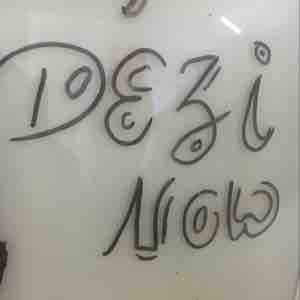 DEZi
NOW